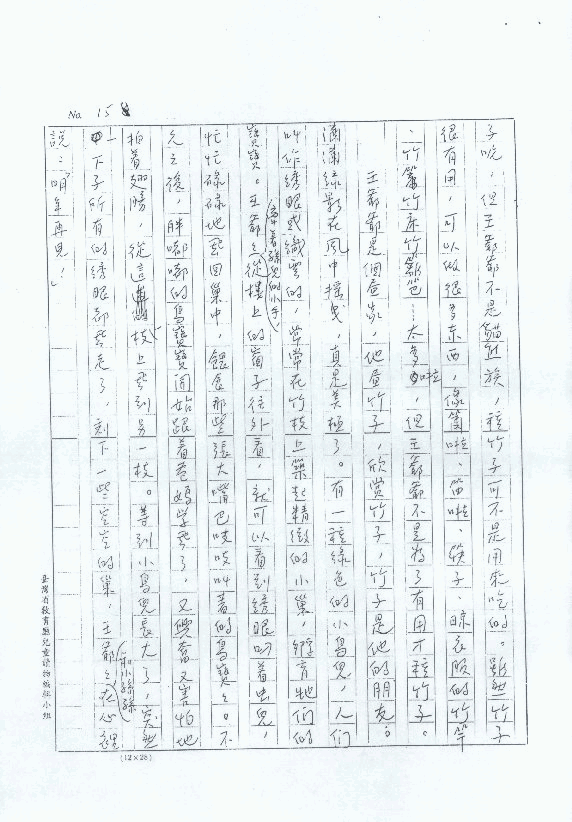 No. 15
子呢,但王爺爺不是貓熊族,種竹子可不是用來吃的。雖然竹子
很有用,可以做很多東西,像簫啦、笛啦、筷子、晾衣服的竹竿
、竹簾竹床竹籬笆……太多啦,但王爺爺不是為了有用才種竹子。
王爺爺是個畫家,他畫竹子,欣賞竹子,竹子是他的朋友。
滿滿綠影在風中搖曳,真是美極了。有一種綠色的小鳥兒,人們
叫作綉眼或織雲的,常常在竹枝上築起精緻的小巢,孵育牠們的
寶寶。王爺爺牽著孫兒的小手從樓上的窗子往外看,就可以看到綉眼叼着虫兒,
忙忙碌碌地飛回巢中,餵食那些張大嘴巴吱吱叫著的鳥寶寶。不
久之後,胖嘟嘟的鳥寶寶開始跟着爸媽學飛了,又興奮又害怕地
拍着翅膀,從這枝上飛到另一枝。等到小鳥兒長大了,突然
一下子所有的綉眼都飛走了,剩下一些空空的巢,王爺爺和小孫孫在心裡
說:「明年再見!」
臺灣省教育廳兒童讀物編輯小組
(12×25)